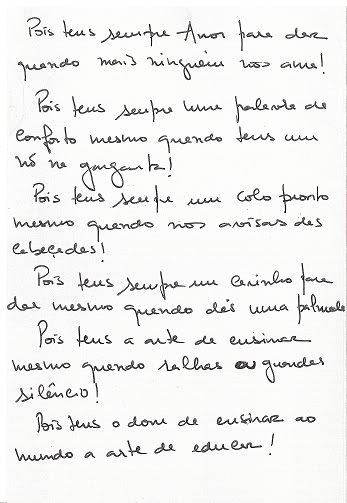 Pois tens sempre Amor para dar
quando mais ninguém nos ama!
Pois tens sempre uma palavra de
conforto mesmo quando tens um
nó na garganta!
Pois tens sempre um colo pronto
mesmo quando nos avisas das
cabeçadas!
Pois tens sempre um carinho para
dar mesmo quando dás uma palmada
Pois tens a arte de ensinar
mesmo quando ralhas ou guardas
silêncio!
Pois tens o dom de ensinar ao
mundo a arte de educar!